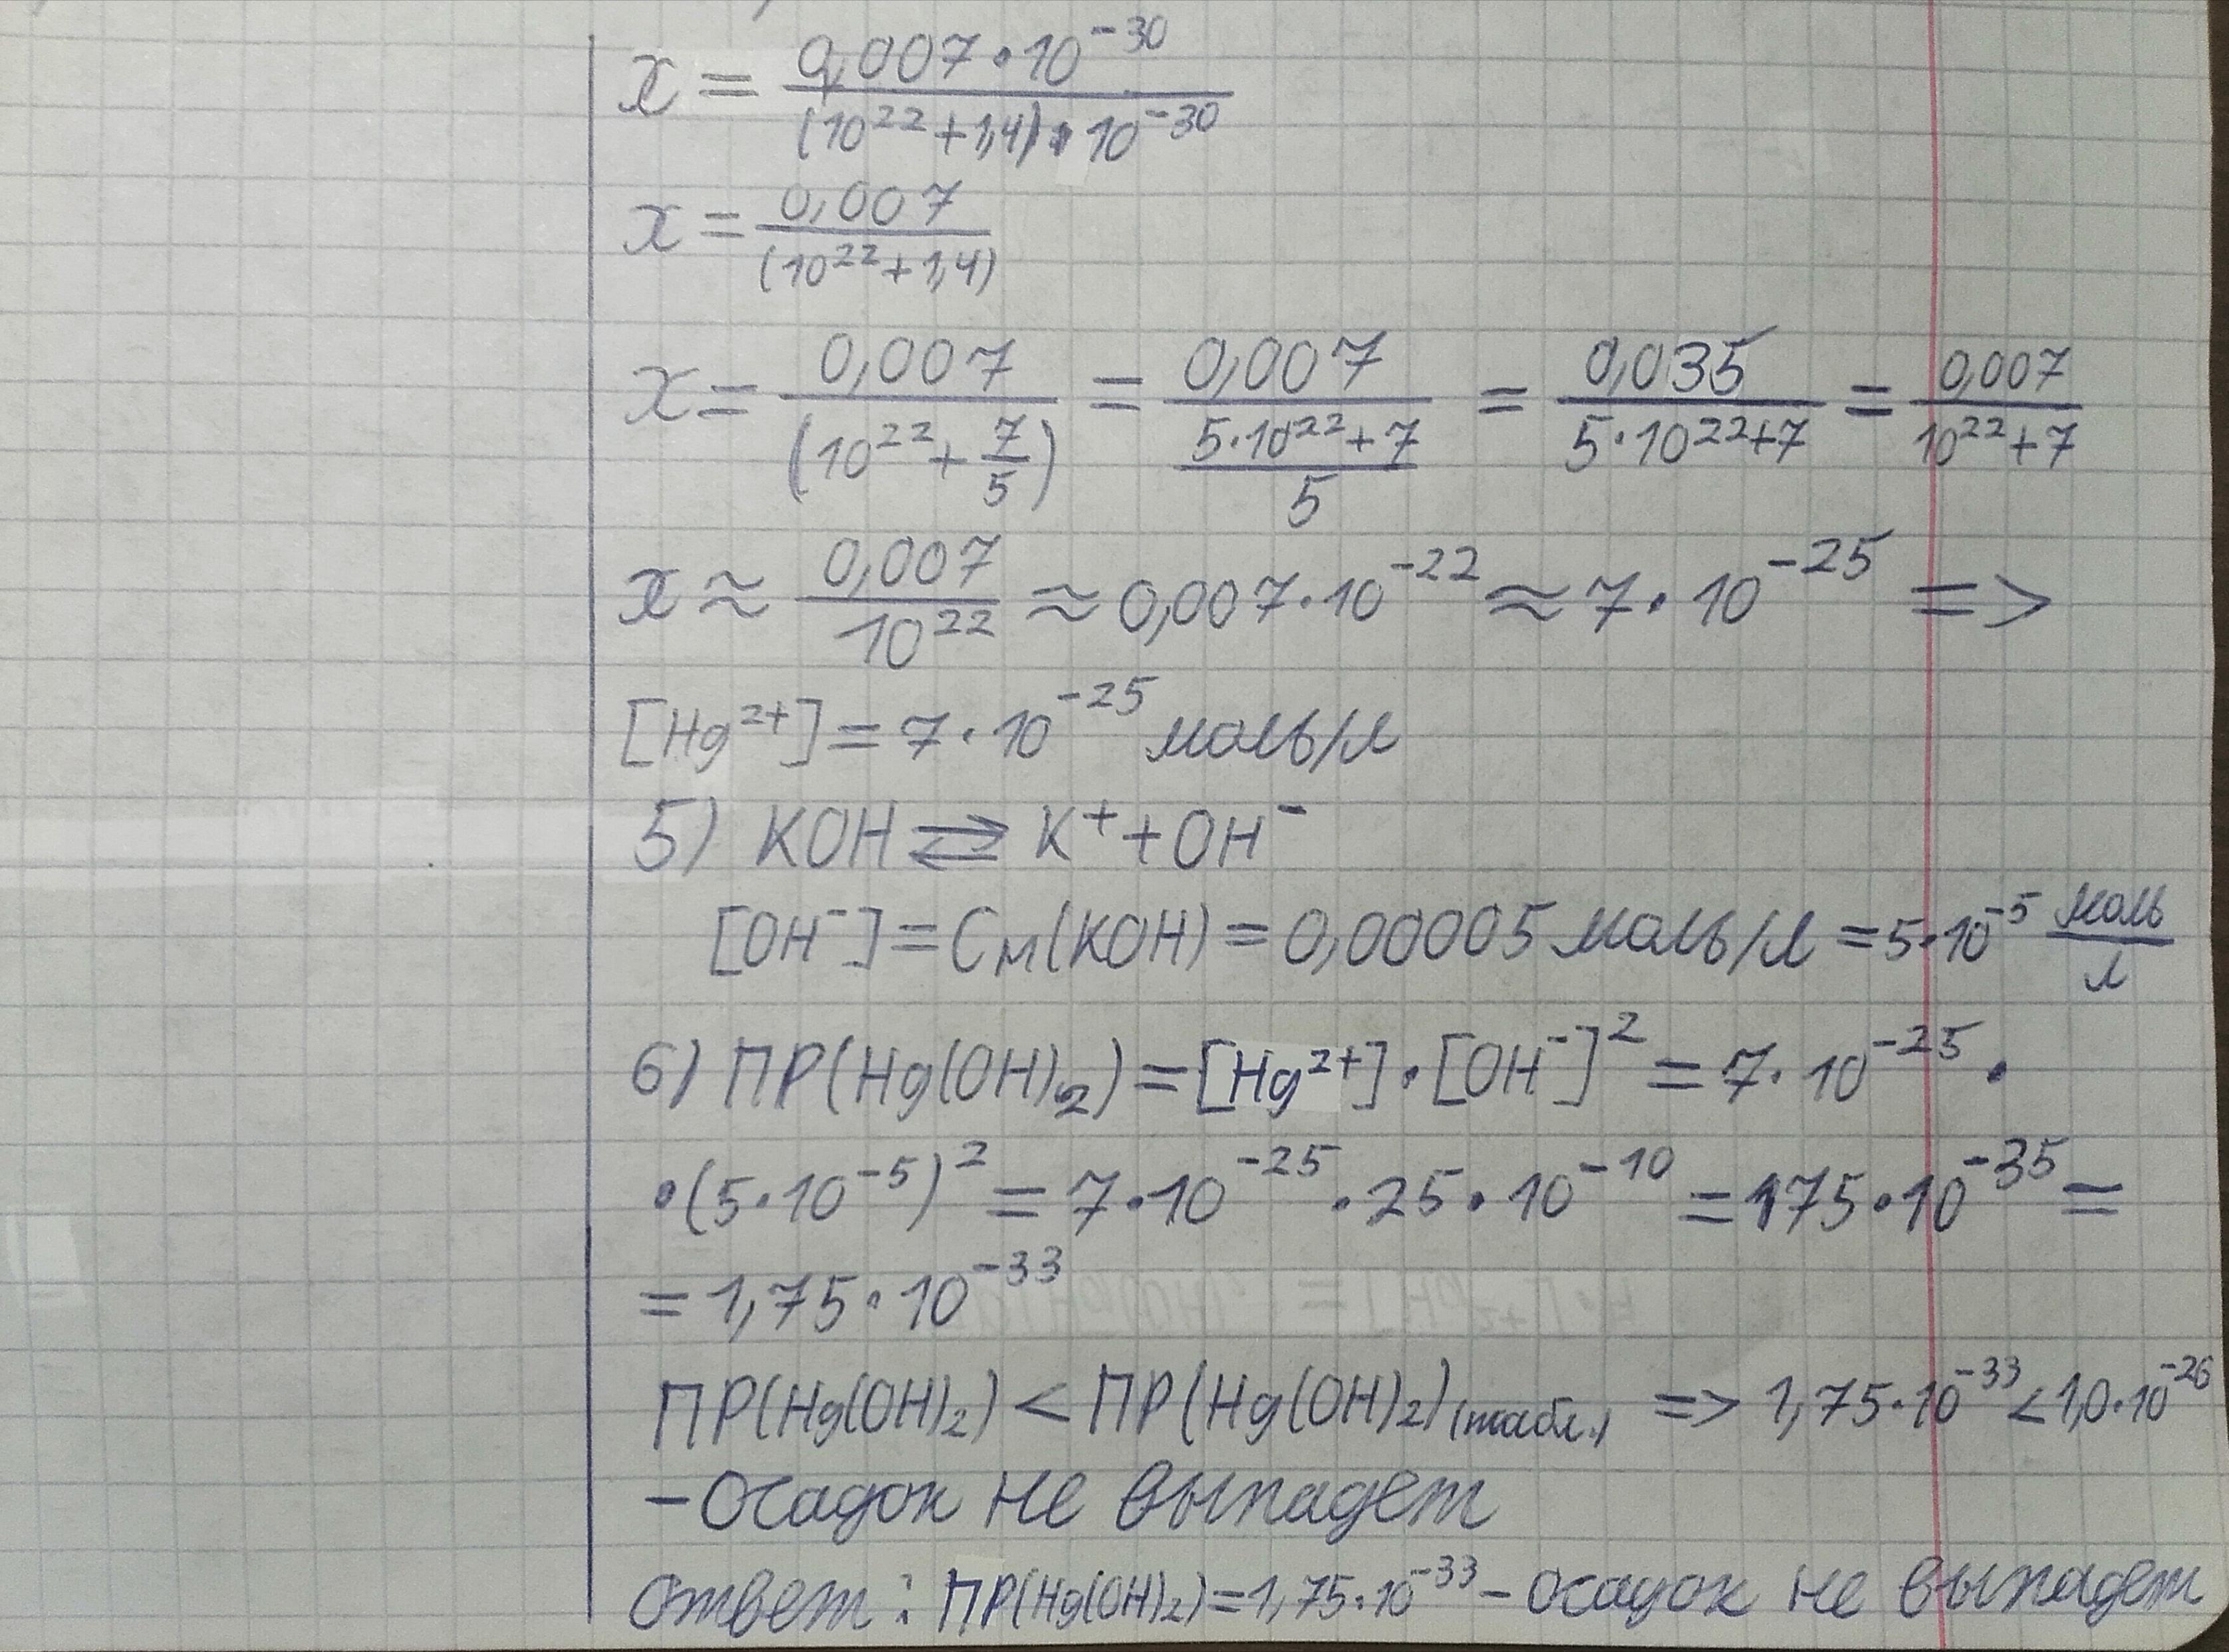 x = 0,007·10⁻³⁰ / (10²²+1,4)·10⁻³⁰
x = 0,007 / (10²²+1,4)
x = 0,007 / (10²²+7/5) = 0,007 / ((5·10²²+7)/5) = 0,035 / (5·10²²+7) = 0,007 / (10²²+7)
x ≈ 0,007 / 10²² ≈ 0,007·10⁻²² ≈ 7·10⁻²⁵ =>
[Hg²⁺] = 7·10⁻²⁵ моль/л
5) KOH ⇄ K⁺ + OH⁻
[OH⁻] = Cм(KOH) = 0,00005 моль/л = 5·10⁻⁵ моль/л
6) ПР(Hg(OH)₂) = [Hg²⁺]·[OH⁻]² = 7·10⁻²⁵·
·(5·10⁻⁵)² = 7·10⁻²⁵·25·10⁻¹⁰ = 175·10⁻³⁵ =
= 1,75·10⁻³³
ПР(Hg(OH)₂) < ПР(Hg(OH)₂)(табл.) => 1,75·10⁻³³ < 1,0·10⁻²⁶
– Осадок не выпадет
Ответ: ПР(Hg(OH)₂) = 1,75·10⁻³³ – осадок не выпадет